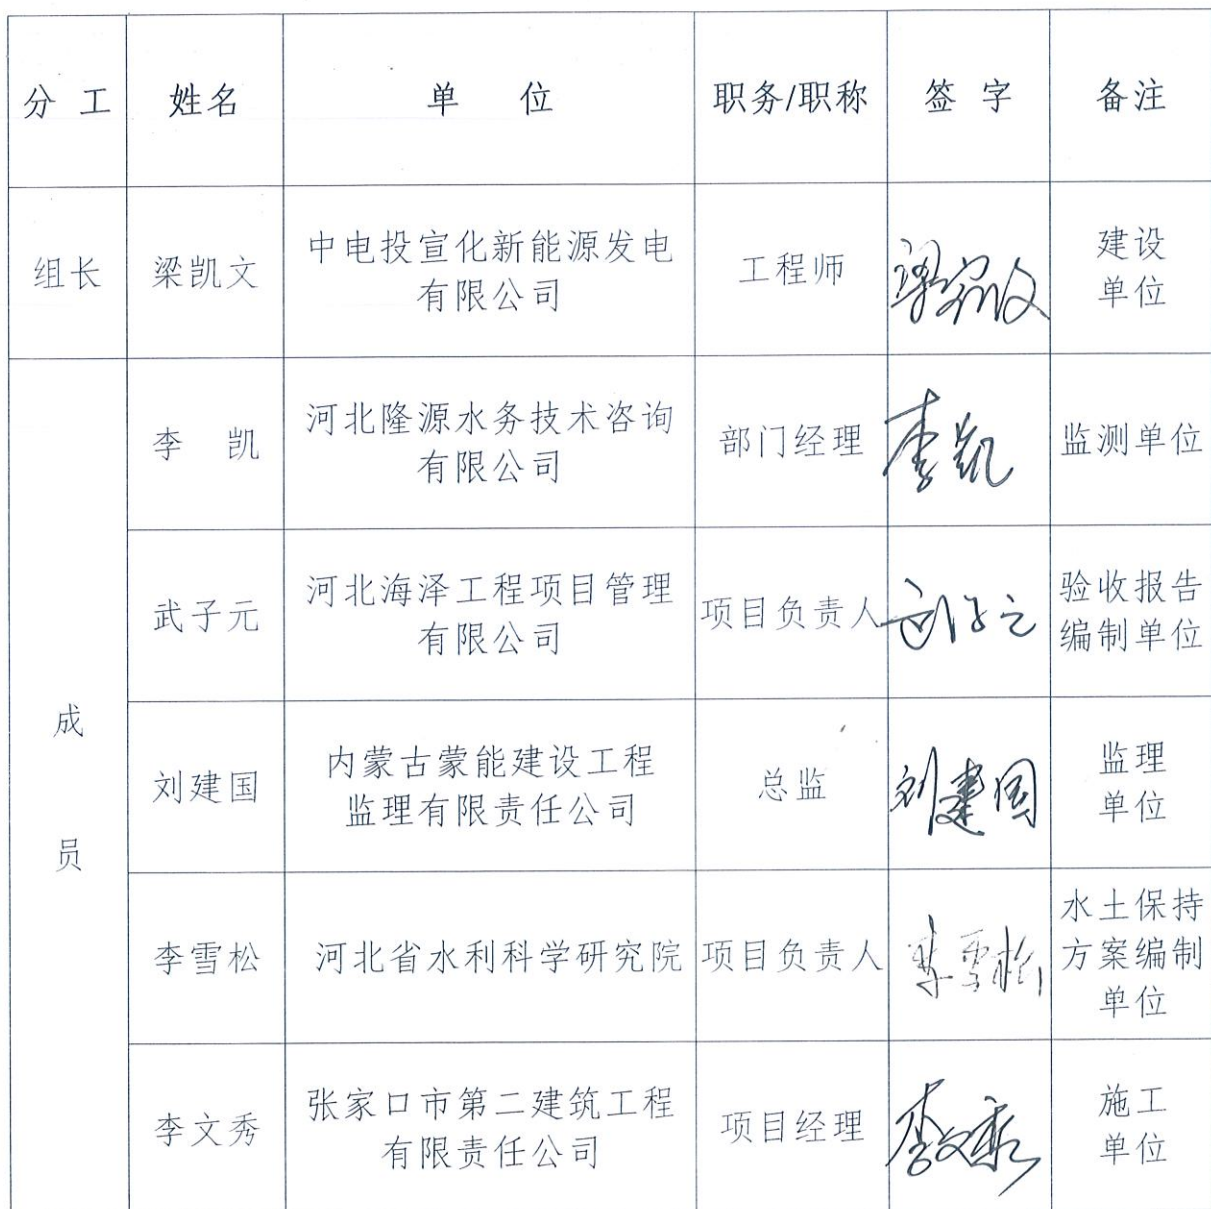 分 工 姓名 单 位 职务/职称 签 字 备注
组长 梁凯文 中电投宣化新能源发电
有限公司 工程师 梁凯文 建设
单位
成
员
李 凯 河北隆源水务技术咨询
有限公司 部门经理 李凯 监测单位
武子元 河北海泽工程项目管理
有限公司 项目负责人 武子元 验收报告
编制单位
刘建国 内蒙古蒙能建设工程
监理有限责任公司 总监 刘建国 监理
单位
李雪松 河北省水利科学研究院 项目负责人 李雪松 水土保持
方案编制
单位
李文秀 张家口市第二建筑工程
有限责任公司 项目经理 李文秀 施工
单位